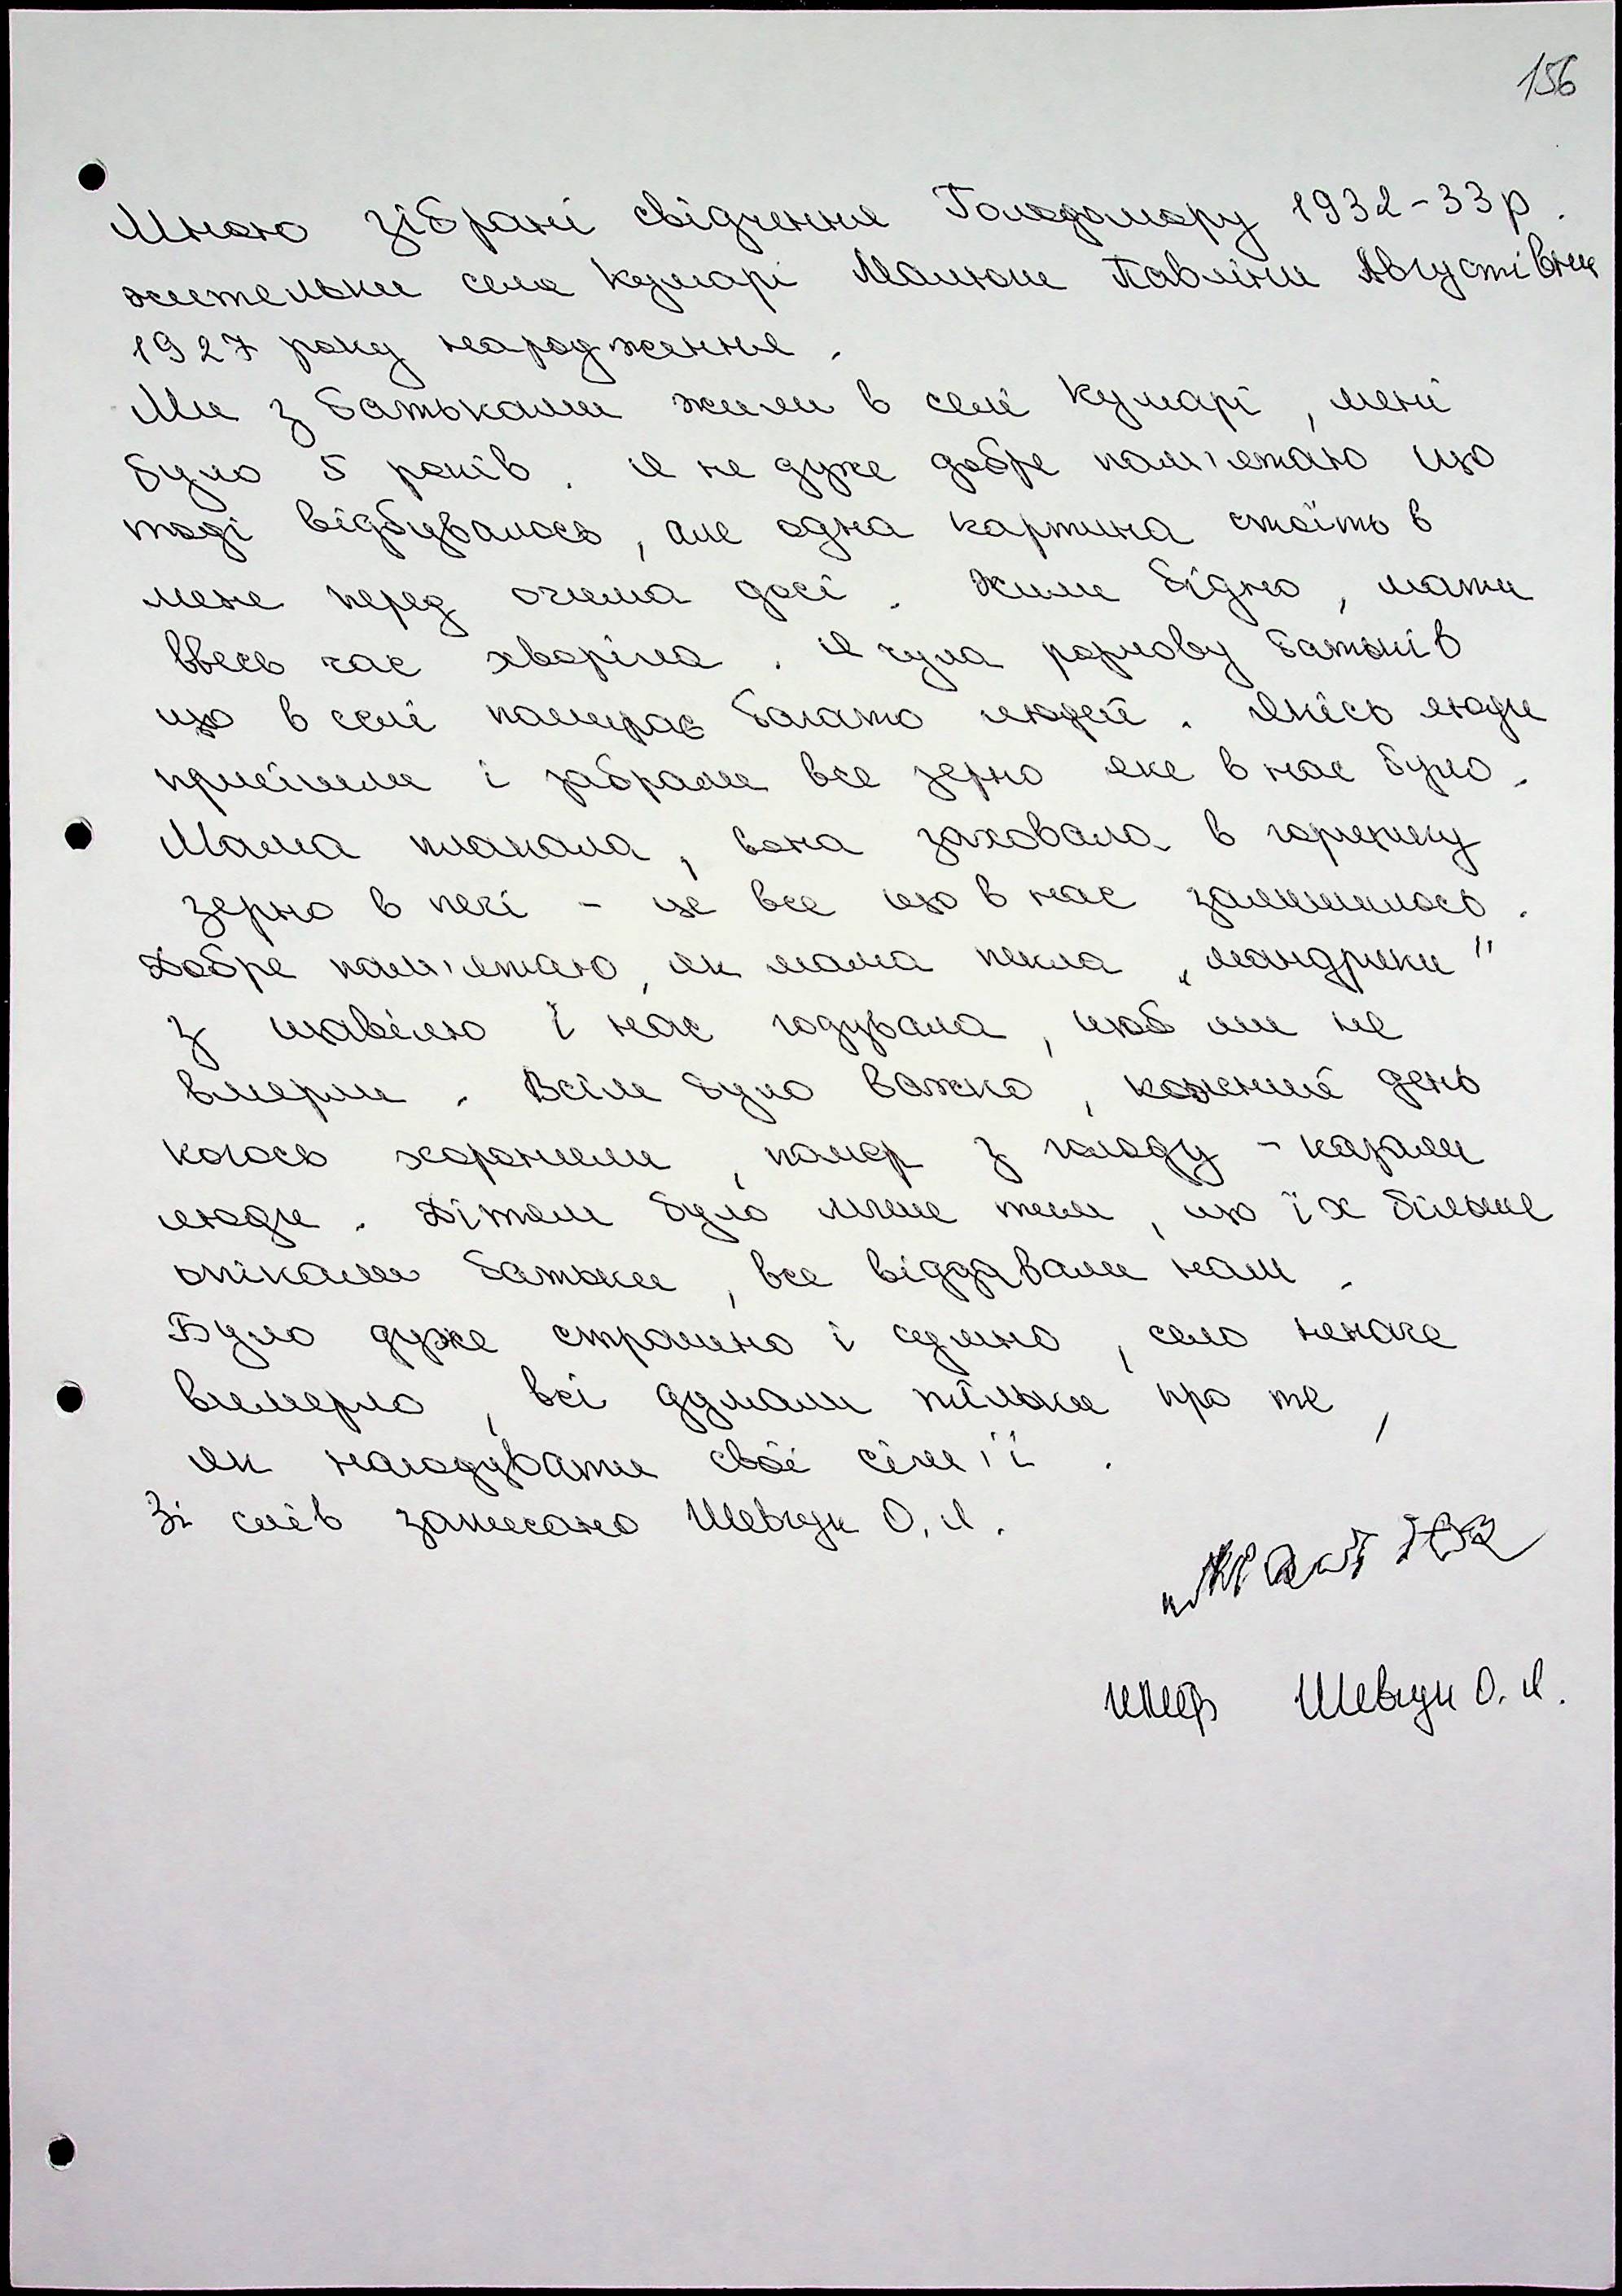 156
Мною зібрані свідчення Голодомору 1932-33р.
жительки села Кумарі Малюти Павліни Августівни
1927 року народження.
Ми з батьками жили в селі Кумарі, мені
було 5 років. Я не дуже добре пам'ятаю що
тоді відбувалось, але одна картина стоїть в
мене перед очима досі. Жили бідно, мати
ввесь час хворіла. Я чула розмову батьків
що в селі помирає багато людей. Якісь люди
прийшли і забрали все зерно яке в нас було.
Мама плакала, вона заховала в горщику
зерно в печі - це все що в нас залишилось.
Добре пам'ятаю, як мама пекла „мандрики"
з щавілю і нас годувала, щоб ми не
вмерли. Всім було важко, кожний день
когось хоронили, помер з голоду - казали
люди. Дітям було лише тим, що їх більше
опікали батьки, все віддавали нам.
Було дуже страшно і сумно, село неначе
вимерло, всі думали тільки про те,
як нагодувати свої сім'ї.
Зі слів записано Шевчук О.Я.
Шевчук О.Я.